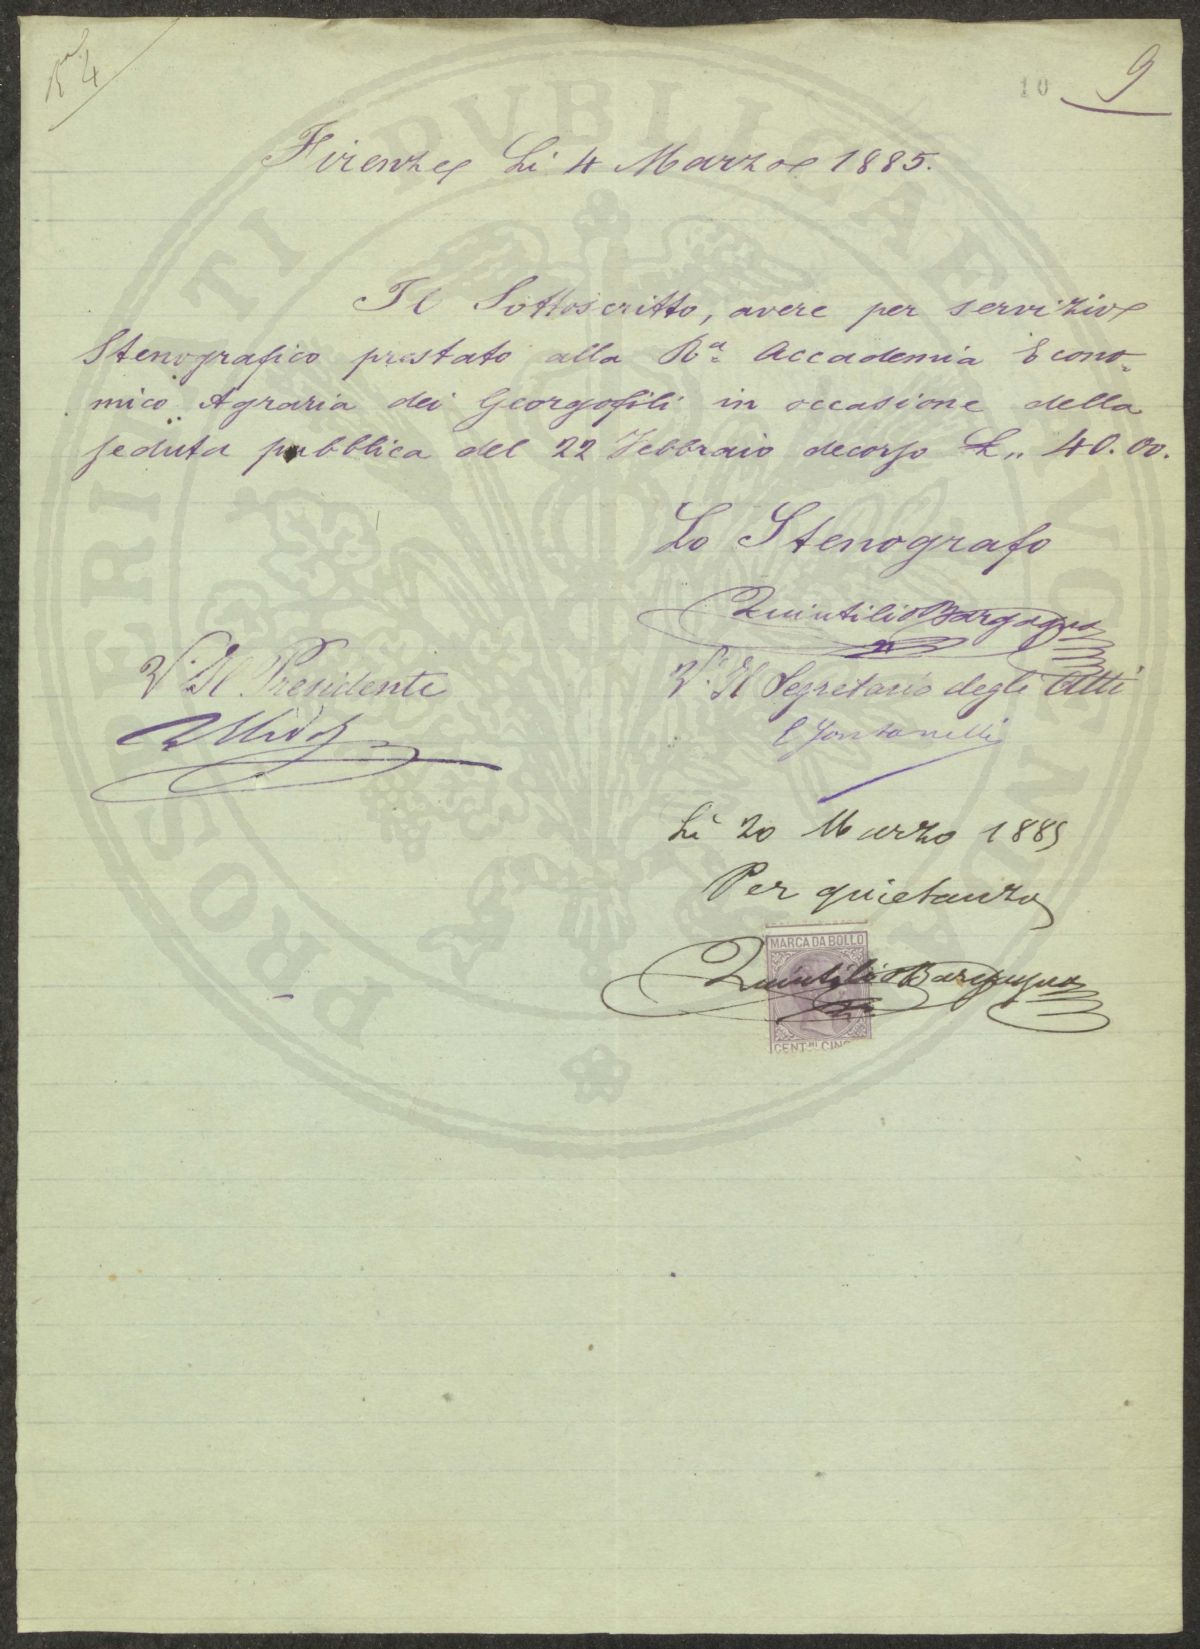 Rª 4
10
9
Firenze Li 4 Marzo 1885.
Il Sottoscritto, avere per servizio
Stenografico prestato alla Rª Accademia Econo-
mico.. Agraria dei Georgofili in occasione della
seduta pubblica del 22 Febbraio decorso L.. 40.00.
Lo Stenografo
Quintilio Bargagna
V. Il Presidente
V. Il Segretario degli Atti
C Fontanelli
Li 20 Marzo 1885
Per quietanza
MARCA DA BOLLO
Quintilio Bargagna
CENTMI CINQ
PROSPERITATI PVBLICAE AVGENDAE